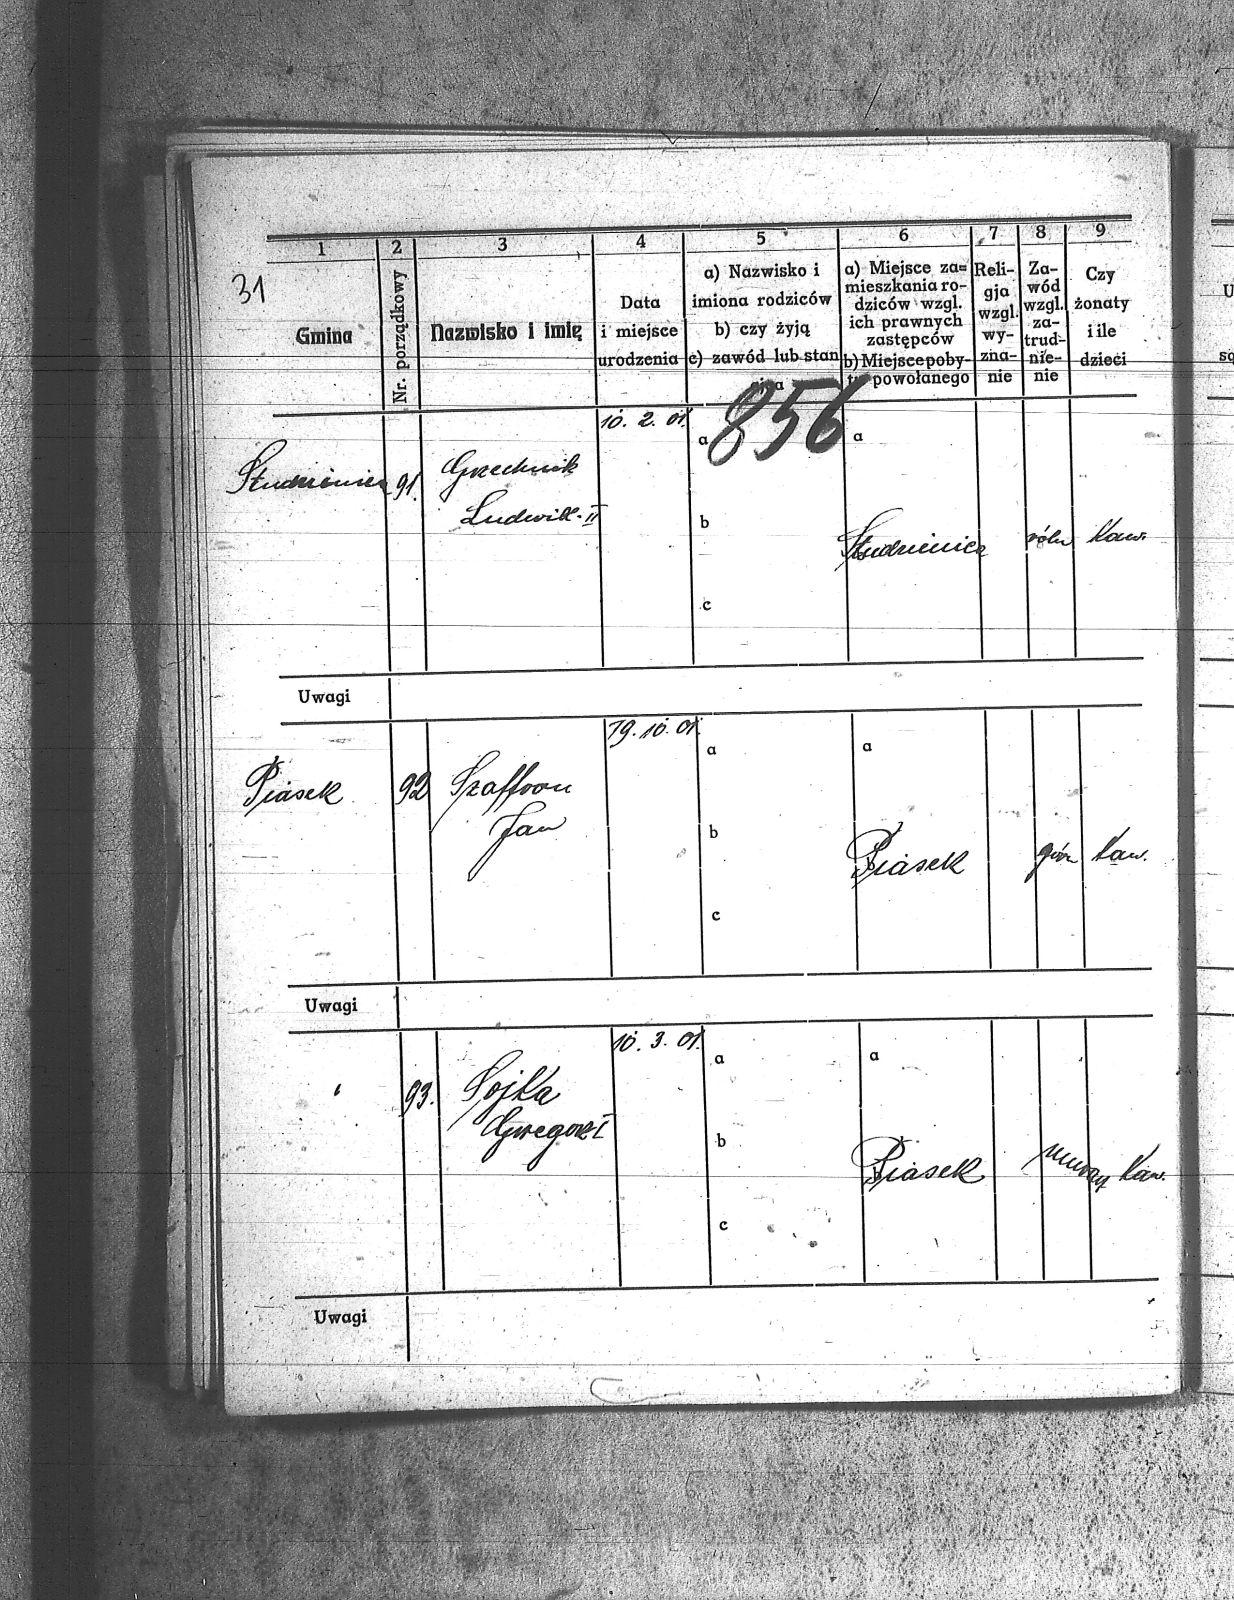 31
1 2 3 4 5 6 7 8 9
Gmina
Nr. porządkowy
Nazwisko i imię
Data
i miejsce
urodzenia
a) Nazwisko i
imiona rodziców
b) czy żyją
c) zawód lub stan
a) Miejsce za=
mieszkania ro-
dziców wzgl.
ich prawnych
zastępców
b) Miejsce poby-
tu powołanego
Reli-
gja
wzgl.
wy-
zna-
nie
Za-
wód
wzgl.
za-
trud-
nie-
nie
Czy
żonaty
i ile
dzieci
856
10. 2. 01.
a a
Studzienice 91. Grzechnik
Ludwik II
b
Studzienice roln kaw.
c
Uwagi
19. 10. 01.
a a
Piasek 92 Szaffron
Jan
b
Piasek górn kaw.
c
Uwagi
10. 3. 01.
a a
" 93. Sojka
Grzegorz I
b
Piasek kaw.
c
Uwagi